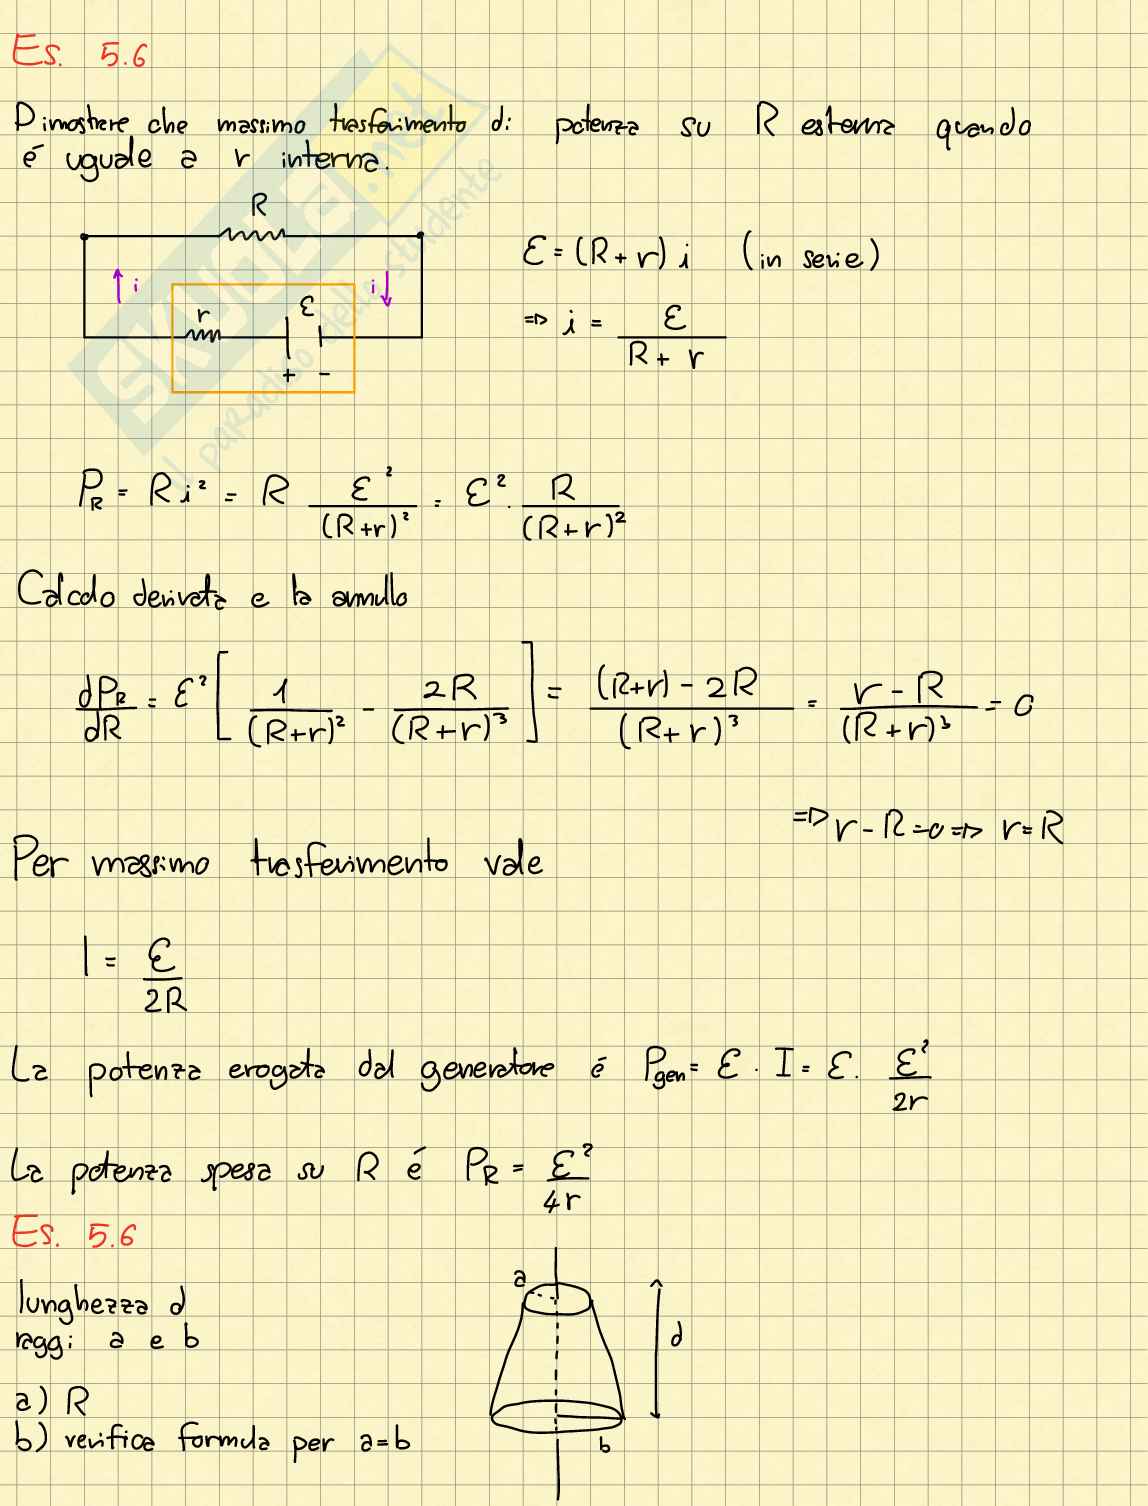 Es. 5.6
Dimostrare che massimo trasferimento di potenza su R esterna quando
é uguale a r interna.
R
ℰ = (R+r) i (in serie)
i i
r ℰ
=> i = ℰ / (R + r)
+ -
SKUOLA.net
il paradiso dello studente
P_R = R i² = R ℰ²/(R+r)² = ℰ² · R/(R+r)²
Calcolo derivata e la annullo
dP_R/dR = ℰ² [ 1/(R+r)² - 2R/(R+r)³ ] = ((R+r) - 2R)/(R+r)³ = (r - R)/(R+r)³ = 0
=> r - R = 0 => r = R
Per massimo trasferimento vale
I = ℰ/2R
La potenza erogata dal generatore é P_gen = ℰ · I = ℰ · ℰ²/2r
La potenza spesa su R é P_R = ℰ²/4r
Es. 5.6
lunghezza d
raggi a e b
a) R
b) verifica formula per a=b
a
d
b